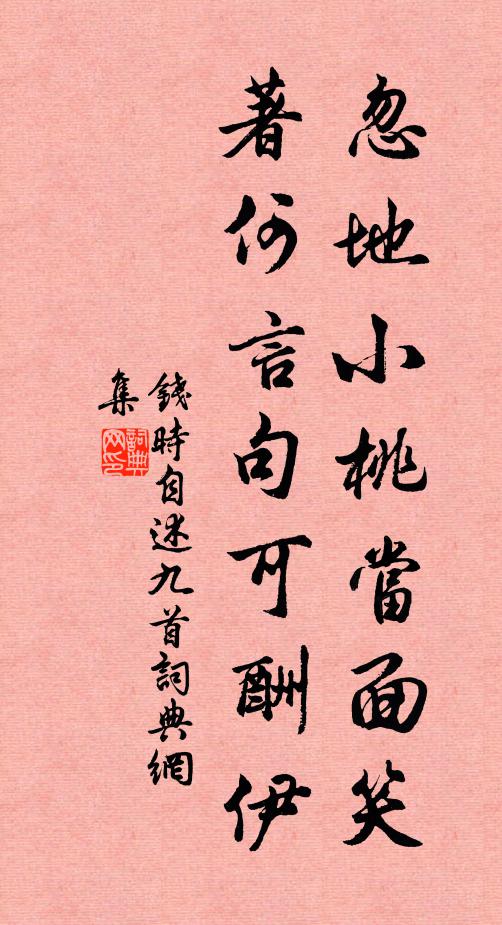 忽地小桃當面笑
著何言句可酬伊
錢時自述九首詞典網
集
詞典
网印